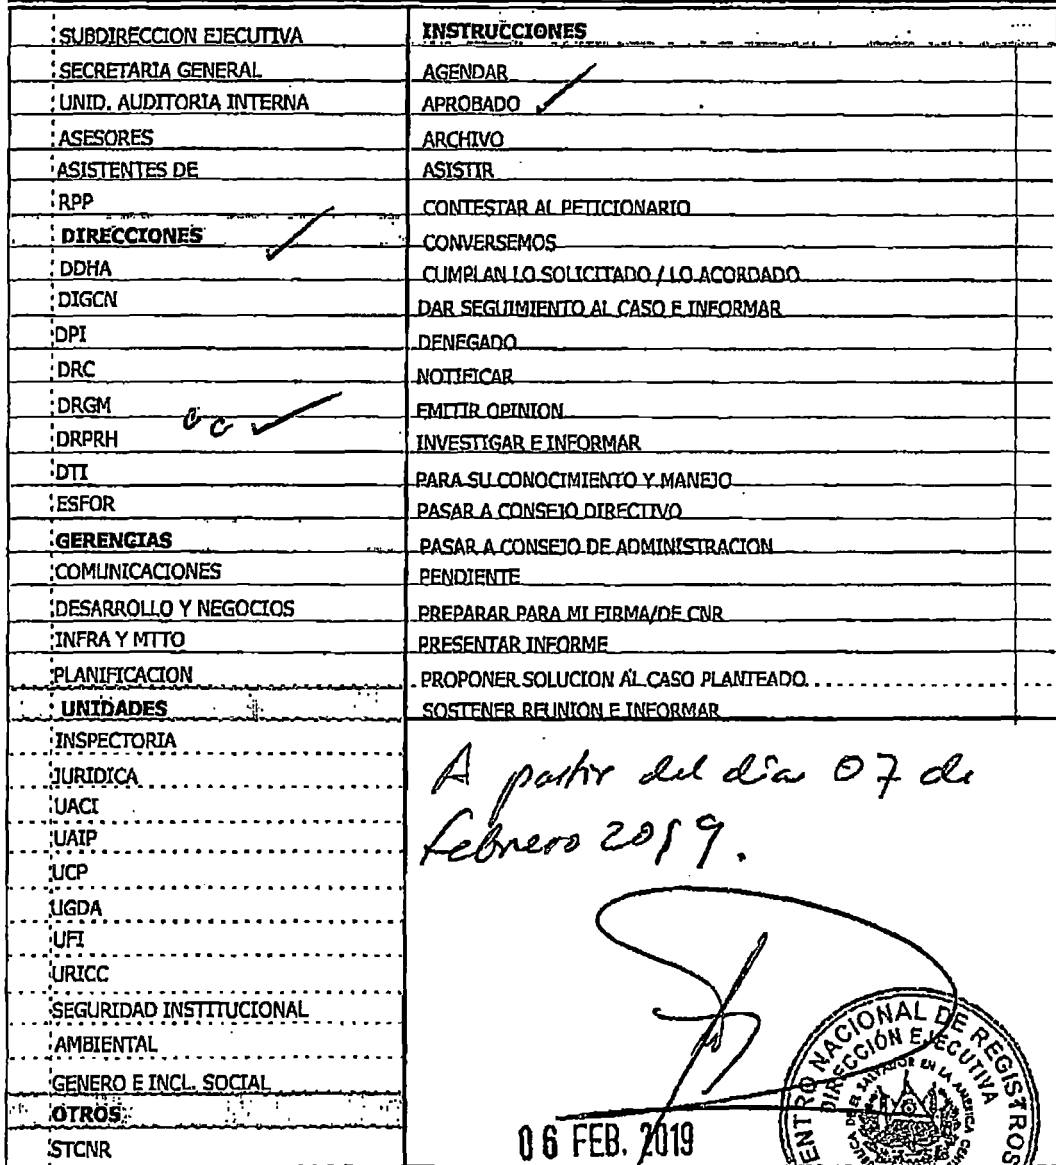 SUBDIRECCION EJECUTIVA
SECRETARIA GENERAL
UNID. AUDITORIA INTERNA
ASESORES
ASISTENTES DE
RPP
DIRECCIONES
DDHA
DIGCN
DPI
DRC
DRGM
cc
DRPRH
DTI
ESFOR
GERENCIAS
COMUNICACIONES
DESARROLLO Y NEGOCIOS
INFRA Y MTTO
PLANIFICACION
UNIDADES
INSPECTORIA
JURIDICA
UACI
UAIP
UCP
UGDA
UFI
URICC
SEGURIDAD INSTITUCIONAL
AMBIENTAL
GENERO E INCL. SOCIAL
OTROS
STCNR
INSTRUCCIONES
AGENDAR
APROBADO
ARCHIVO
ASISTIR
CONTESTAR AL PETICIONARIO
CONVERSEMOS
CUMPLAN LO SOLICITADO / LO ACORDADO
DAR SEGUIMIENTO AL CASO E INFORMAR
DENEGADO
NOTIFICAR
EMITIR OPINION
INVESTIGAR E INFORMAR
PARA SU CONOCIMIENTO Y MANEJO
PASAR A CONSEJO DIRECTIVO
PASAR A CONSEJO DE ADMINISTRACION
PENDIENTE
PREPARAR PARA MI FIRMA/DE CNR
PRESENTAR INFORME
PROPONER SOLUCION AL CASO PLANTEADO
SOSTENER REUNION E INFORMAR
A partir del día 07 de
febrero 2019.
06 FEB. 2019
ENTRO NACIONAL DE REGISTROS
DIRECCIÓN EJECUTIVA
DE EL SALVADOR EN LA AMERICA